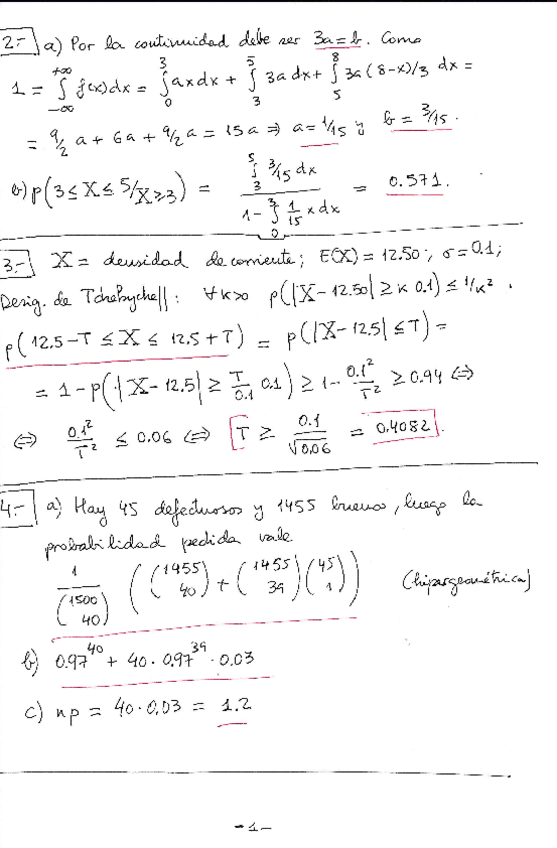 2.- a) Por la continuidad debe ser 3a = b. Como
1 = ∫_{-∞}^{+∞} f(x)dx = ∫_0^3 ax dx + ∫_3^5 3a dx + ∫_5^8 3a(8-x)/3 dx =
= 9/2 a + 6a + 9/2 a = 15a ⇒ a = 1/15 y b = 3/15.
b) p(3 ≤ X ≤ 5/X ≥ 3) = (∫_3^5 3/15 dx) / (1 - ∫_0^3 1/15 x dx) = 0.571.
3.- X = densidad de corriente; E(X) = 12.50; σ = 0.1;
Desig. de Tchebycheff: ∀ k>0 p(|X-12.50| ≥ k 0.1) ≤ 1/k².
p(12.5-T ≤ X ≤ 12.5+T) = p(|X-12.5| ≤ T) =
= 1 - p(|X-12.5| ≥ T/0.1 0.1) ≥ 1 - 0.1²/T² ≥ 0.94 ⇔
⇔ 0.1²/T² ≤ 0.06 ⇔ T ≥ 0.1/√0.06 = 0.4082.
4.- a) Hay 45 defectuosos y 1455 buenos, luego la
probabilidad pedida vale
1/(1500 40) ((1455 40) + (1455 39)(45 1)) (hipergeométrica)
b) 0.97^40 + 40 · 0.97^39 · 0.03
c) np = 40 · 0.03 = 1.2
-1-